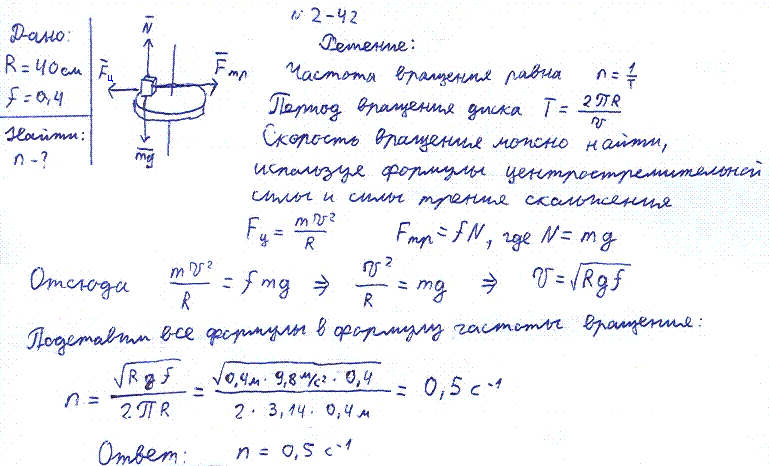 N 2-42
Дано:
R = 40 см
f = 0,4
Найти:
n - ?
N̅
F̅ц
F̅тр
m̅g̅
Решение:
Частота вращения равна n = 1/T
Период вращения диска T = 2πR/v
Скорость вращения можно найти,
используя формулы центростремительной
силы и силы трения скольжения
Fц = mv²/R Fтр = fN, где N = mg
Отсюда mv²/R = fmg ⇒ v²/R = mg ⇒ v = √Rgf
Подставим все формулы в формулу частоты вращения:
n = √Rgf / 2πR = √0,4м · 9,8 м/с² · 0,4 / 2 · 3,14 · 0,4 м = 0,5 с⁻¹
Ответ: n = 0,5 с⁻¹